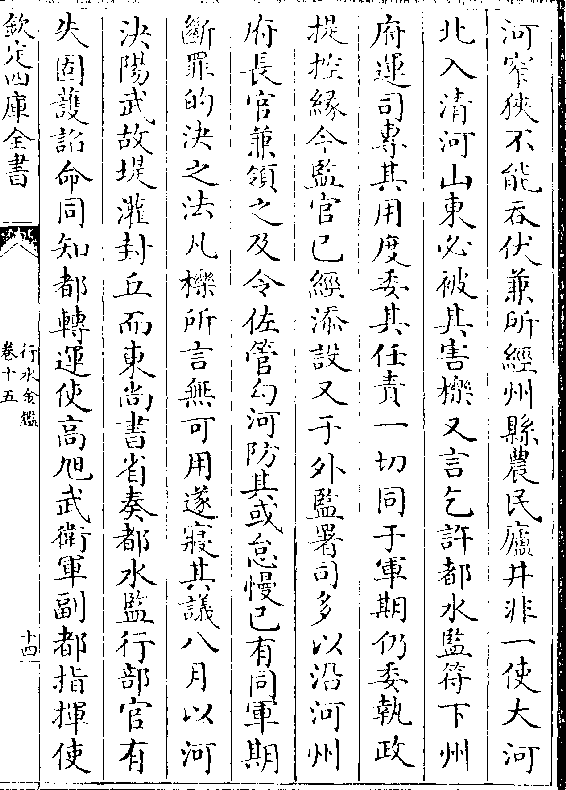 河窄狹不能吞伏兼所經州縣農民廬井非一使大河
北入清河山東必被其害櫟又言乞許都水監符下州
府運司專其用度委其任責一切同于軍期仍委執政
提控緣今監官已經添設又于外監署司多以沿河州
府長官兼領之及令佐管勾河防其或怠慢已有同軍期
斷罪的決之法凡櫟所言無可用遂寢其議八月以河
決陽武故堤灌封丘而東尚書省奏都水監行部官有
失固護詔命同知都轉運使高旭武衛軍副都指揮使
欽定四庫全書
行水金鑑
卷十五
十四